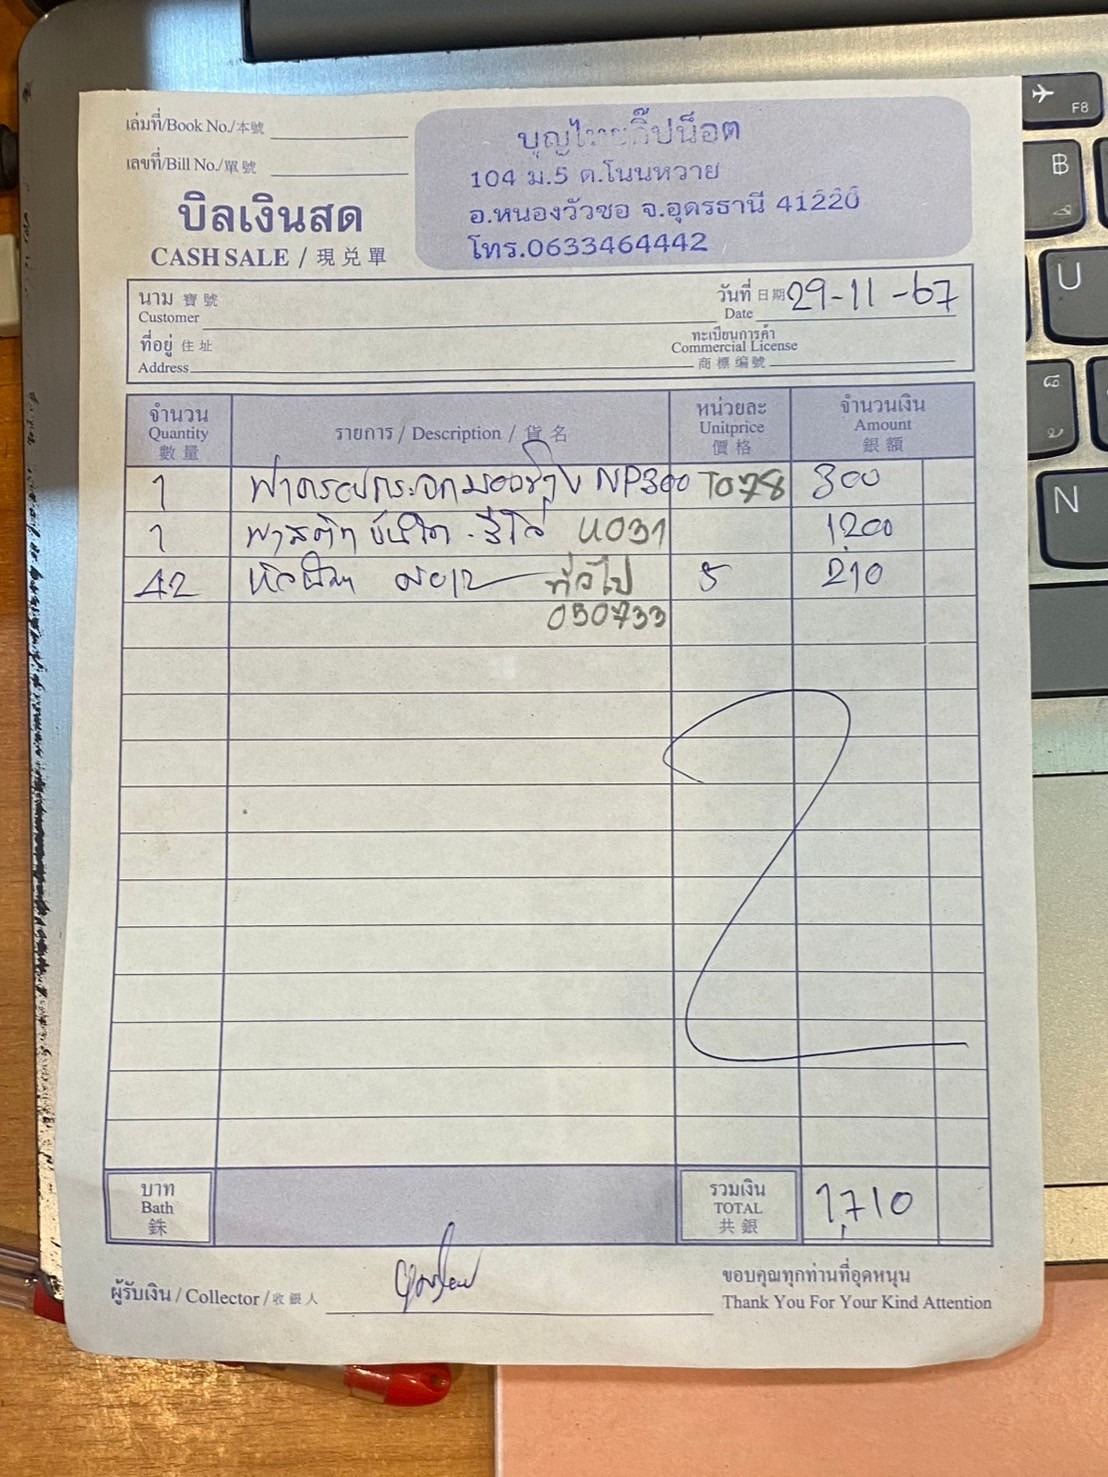 เล่มที่/Book No./本號
เลขที่/Bill No./單號
บิลเงินสด
CASH SALE / 現兑單
บุญไทยกิ๊ปน็อต
104 ม.5 ต.โนนหวาย
อ.หนองวัวซอ จ.อุดรธานี 41220
โทร.0633464442
นาม 寶號
Customer
วันที่ 日期 29-11-67
Date
ที่อยู่ 住址
Address
ทะเบียนการค้า
Commercial License
商標编號
จำนวน
Quantity
數量
รายการ / Description / 貨名
หน่วยละ
Unitprice
價格
จำนวนเงิน
Amount
銀額
1 ฝาครอบกระจกมองข้าง NP300 T078 300
1 1200
42 ทั่วไป 5 210
050733
บาท
Bath
銖
รวมเงิน
TOTAL
共銀
1,710
ผู้รับเงิน / Collector / 收銀人
ขอบคุณทุกท่านที่อุดหนุน
Thank You For Your Kind Attention
F8
B
U
N